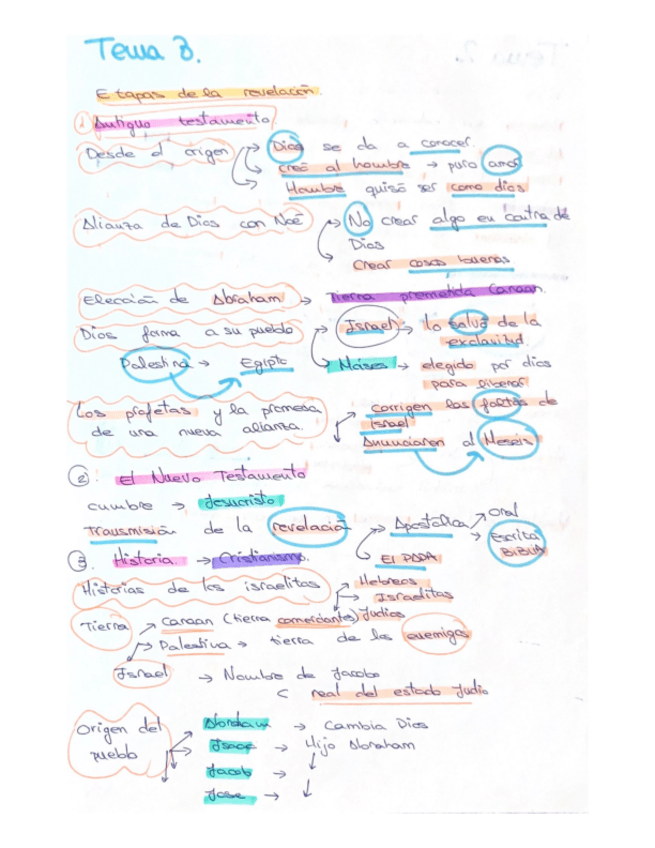 Tema 3.
Etapas de la revelación.
1 Antiguo testamento
Desde el origen → Dios se da a conocer.
→ creó al hombre → puro amor
→ Hombre quiso ser como dios
Alianza de Dios con Noé → No crear algo en contra de
Dios
→ crear cosas buenas
Elección de Abraham → Tierra prometida Canaan.
Dios forma a su pueblo → Israel → lo salva de la
esclavitud.
Palestina → Egipto → Moises → elegido por dios
para liberar
Los profetas y la promesa
de una nueva alianza. → corrigen las faltas de
Israel
Anunciaron al Mesias
2. El Nuevo Testamento
cumbre → Jesucristo
Transmisión de la revelació → Apostólica → oral
→ Escrita
BIBLIA
→ El PAPA
3. Historia → Cristianismo.
Historias de los israelitas → Hebreos
→ Israelitas
Judios
Tierra → Canaan (tierra comerciantes)
→ Palestina → tierra de los enemigos
Israel → Nombre de Jacob
real del estado Judio
Origen del
pueblo → Abraham → Cambia Dios
→ Isaac → Hijo Abraham
Jacob →
Jose →